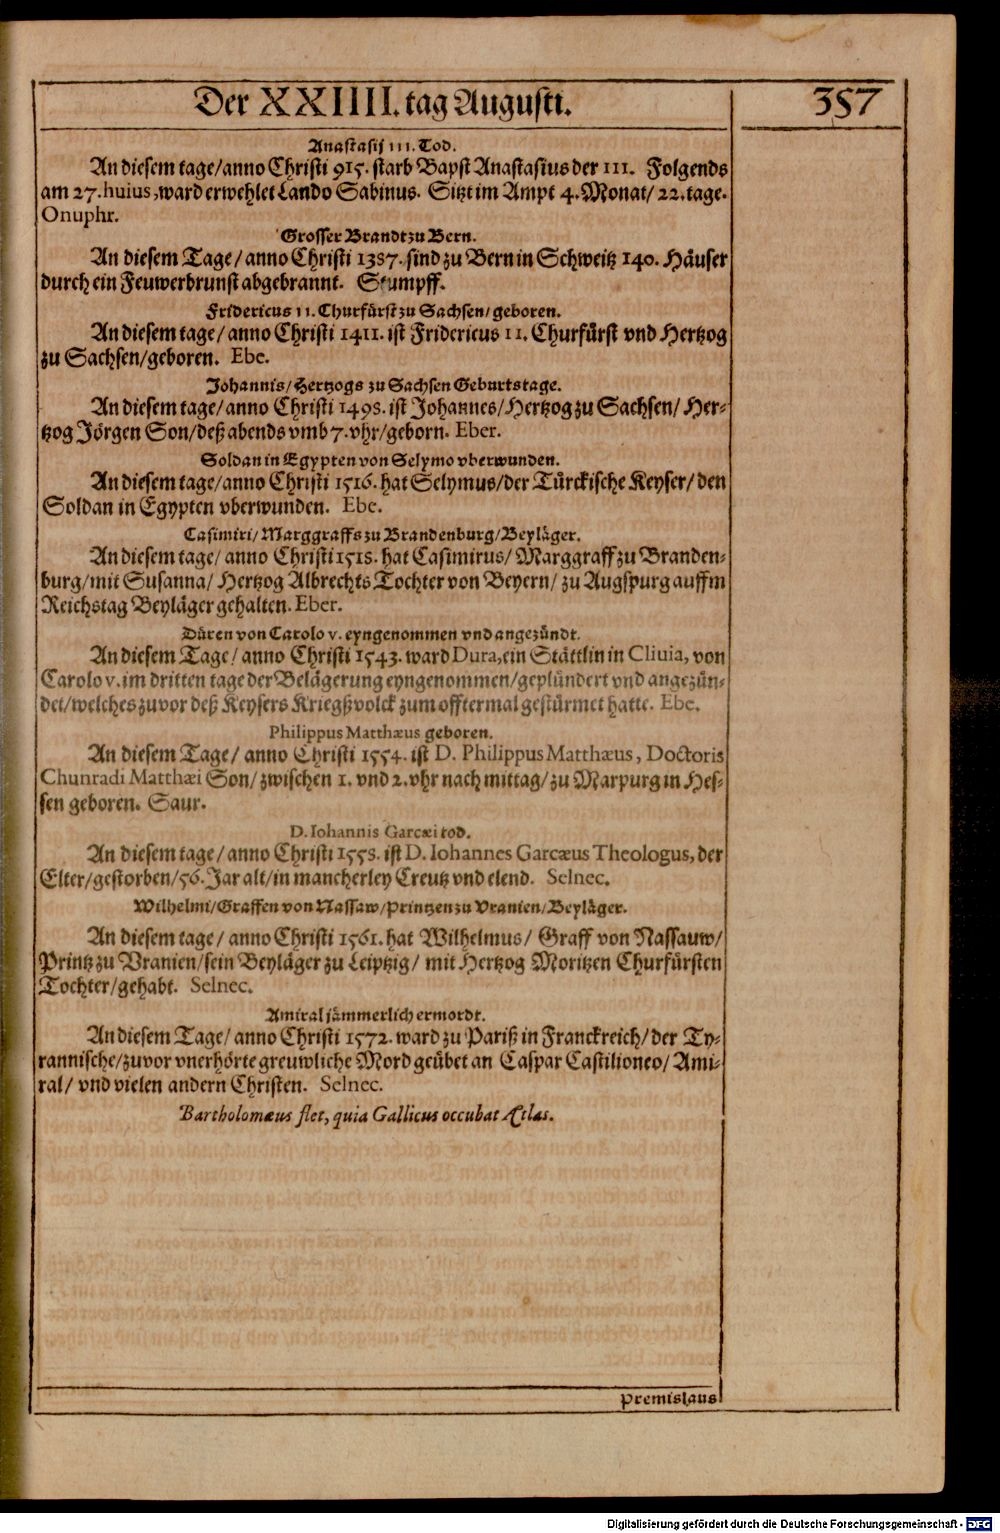 Der XXIIII. tag Augusti.
357
Anastasij III. Tod.
An diesem tage/anno Christi 915. starb Bapst Anastasius der III. Folgends
am 27. huius, ward erwehlet Lando Sabinus. Sitzt im Ampt 4. Monat/ 22. tage.
Onuphr.
Grosser Brandt zu Bern.
An diesem Tage/ anno Christi 1387. sind zu Bern in Schweitz 140. Häuser
durch ein Feuwerbrunst abgebrannt. Stumpff.
Fridericus II. Churfürst zu Sachsen/ geboren.
An diesem tage/ anno Christi 1411. ist Fridericus II. Churfürst vnd Hertzog
zu Sachsen/geboren. Ebe.
Johannis/ Hertzogs zu Sachsen Geburtstage.
An diesem tage/ anno Christi 1498. ist Johannes/ Hertzog zu Sachsen/ Her-
tzog Jörgen Son/deß abends vmb 7. vhr/geborn. Eber.
Soldan in Egypten von Selymo vberwunden.
An diesem tage/anno Christi 1516. hat Selymus/der Türckische Keyser/ den
Soldan in Egypten vberwunden. Ebe.
Casimiri/ Marggraffs zu Brandenburg/ Beyläger.
An diesem tage/ anno Christi 1518. hat Casimirus/ Marggraff zu Branden-
burg/mit Susanna/ Hertzog Albrechts Tochter von Beyern/ zu Augspurg auffm
Reichstag Beyläger gehalten. Eber.
Düren von Carolo v. eyngenommen vnd angezündt.
An diesem Tage/ anno Christi 1543. ward Dura, ein Stättlin in Cliuia, von
Carolo v. im dritten tage der Belägerung eyngenommen/geplündert vnd angezün-
det/welches zuvor deß Keysers Kriegßvolck zum offtermal gestürmet hatte. Ebe.
Philippus Matthæus geboren.
An diesem Tage/ anno Christi 1554. ist D. Philippus Matthæus, Doctoris
Chunradi Matthæi Son/ zwischen 1. vnd 2. vhr nach mittag/ zu Marpurg in Hes-
sen geboren. Saur.
D. Iohannis Garcæi tod.
An diesem tage/ anno Christi 1558. ist D. Iohannes Garcæus Theologus, der
Elter/gestorben/56. Jar alt/in mancherley Creutz vnd elend. Selnec.
Wilhelmi/ Graffen von Nassaw/ Printzen zu Vranien/ Beyläger.
An diesem tage/ anno Christi 1561. hat Wilhelmus/ Graff von Nassauw/
Printz zu Vranien/sein Beyläger zu Leiptzig/ mit Hertzog Moritzen Churfürsten
Tochter/gehabt. Selnec.
Amiral jämmerlich ermordt.
An diesem Tage/ anno Christi 1572. ward zu Pariß in Franckreich/ der Ty-
rannische/zuvor vnerhörte greuwliche Mord geübet an Caspar Castilioneo/ Ami-
ral/ vnd vielen andern Christen. Selnec.
Bartholomæus flet, quia Gallicus occubat Atlas.
Premislaus
Digitalisierung gefördert durch die Deutsche Forschungsgemeinschaft - DFG